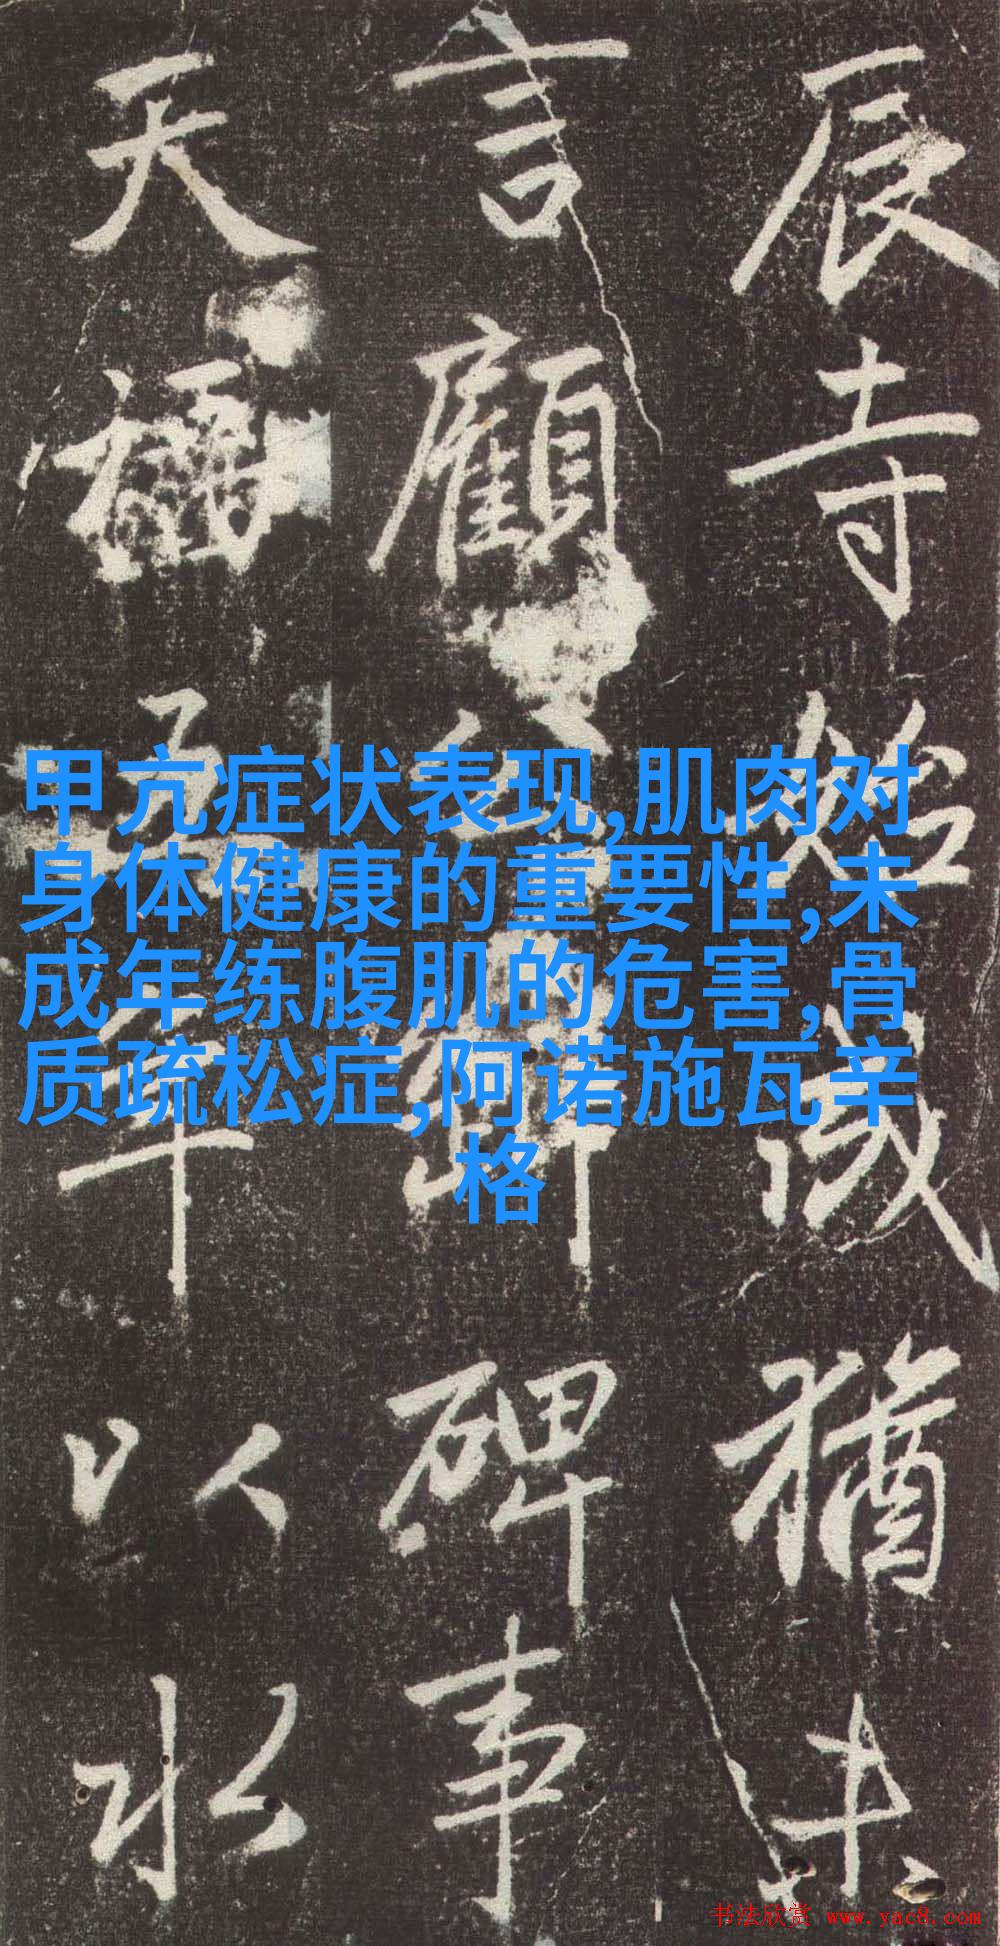 辰寺始歲猶未
言顧
碑事
天福
年以水
甲亢症状表现,肌肉对
身体健康的重要性,未
成年练腹肌的危害,骨
质疏松症,阿诺施瓦辛
格
书法欣赏 www.yac8.com